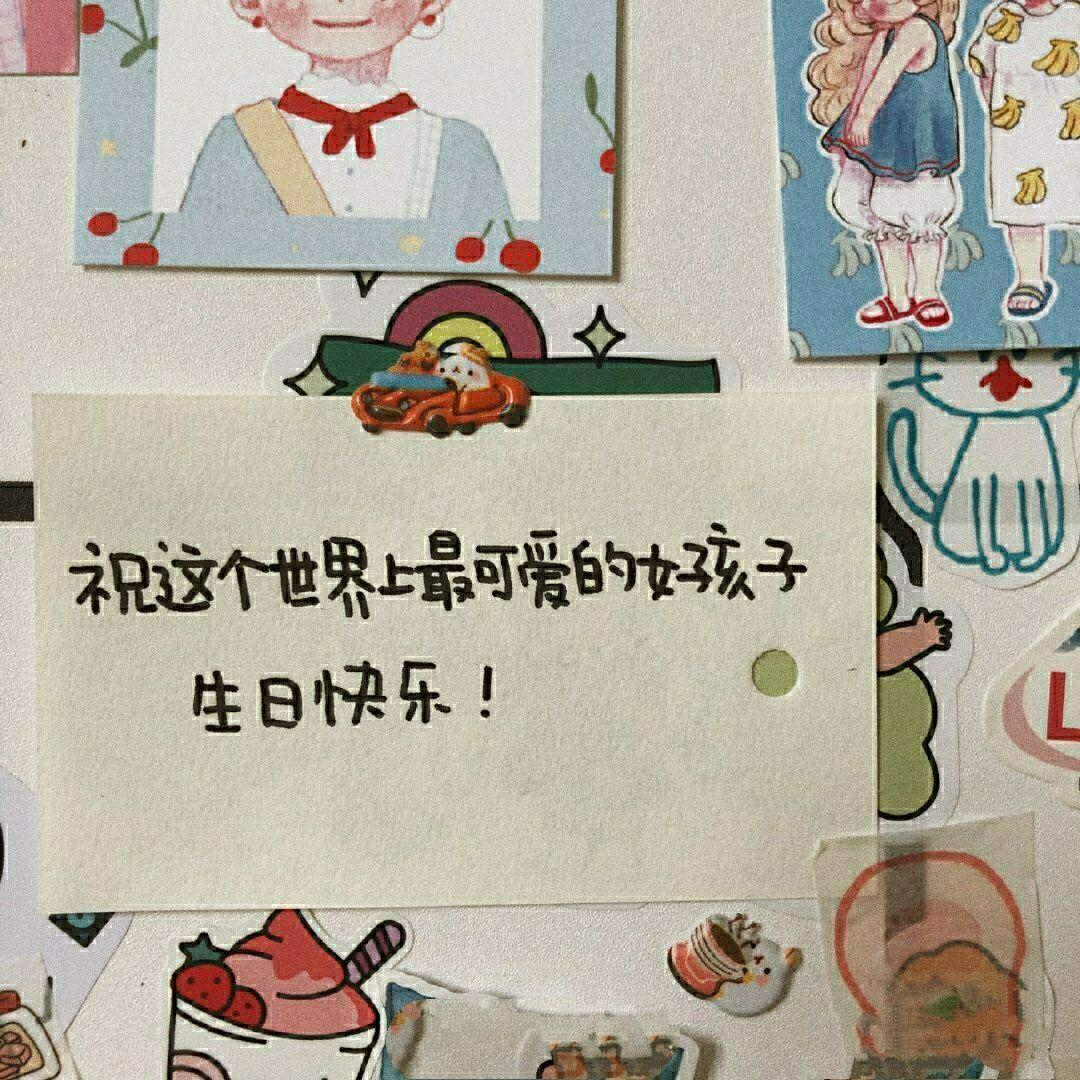 祝这个世界上最可爱的女孩子
生日快乐！
L